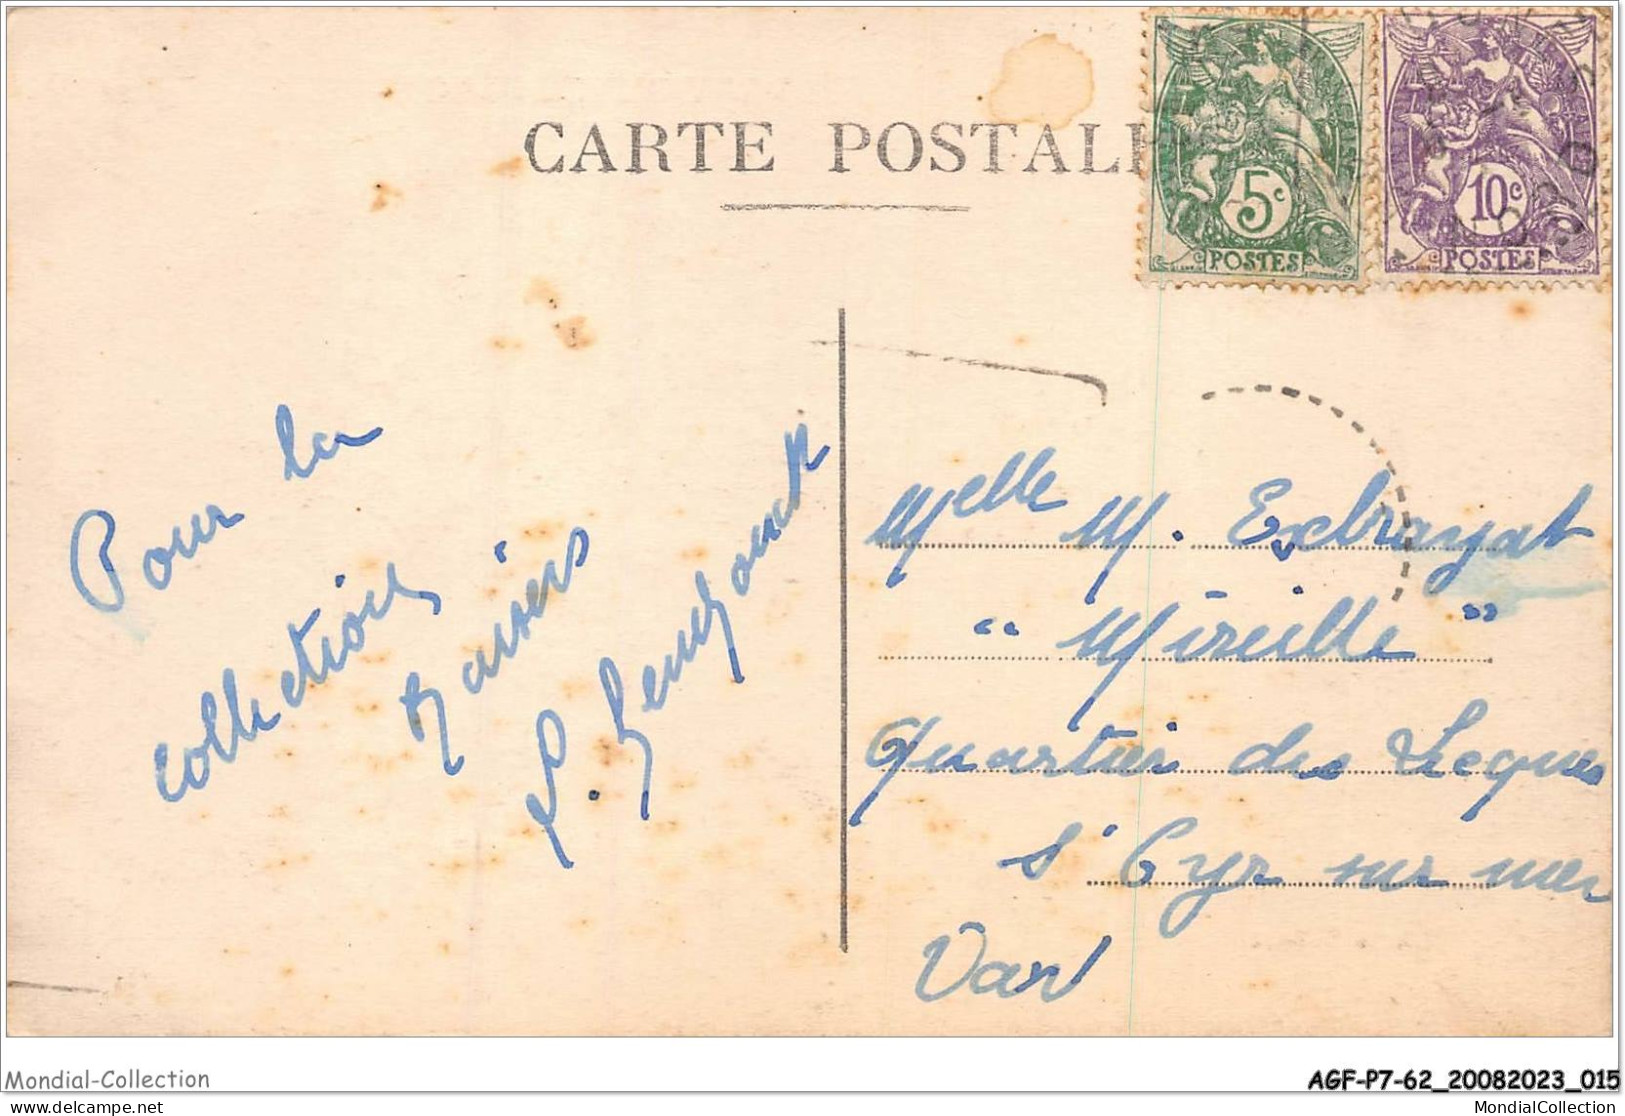 CARTE POSTALE
5c
POSTES
10c
POSTES
Pour la
collection
Baisers
Melle M. Exbrayat
"Mireille"
Quartier des Lecques
St Cyr sur mer
Var
Mondial-Collection
AGF-P7-62_20082023_015
delcampe.net
MondialCollection